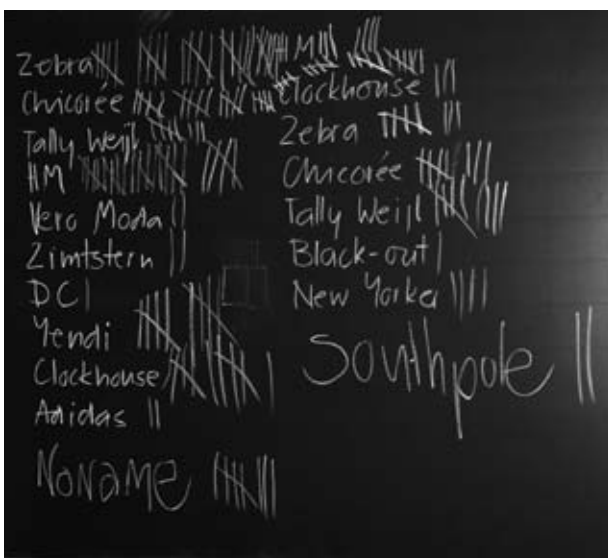 Zebra
Chicorée
Tally Weijl
HM
Vero Moda
Zimtstern
DC
Yendi
Clockhouse
Adidas
NoNAME
HM
Clockhouse
Zebra
Chicorée
Tally Weijl
Black-out
New Yorker
Southpole